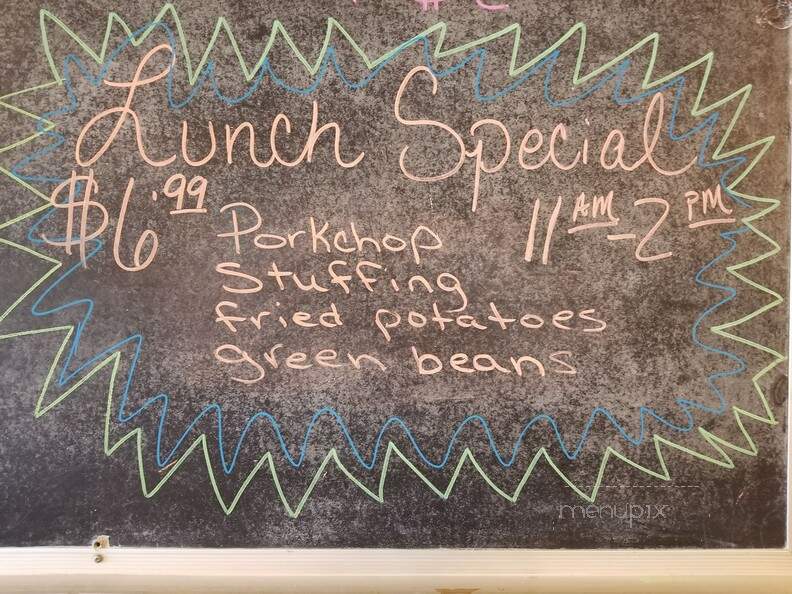 Lunch Special
$6.99
11 AM - 2 PM
Porkchop
Stuffing
fried potatoes
green beans
menupix